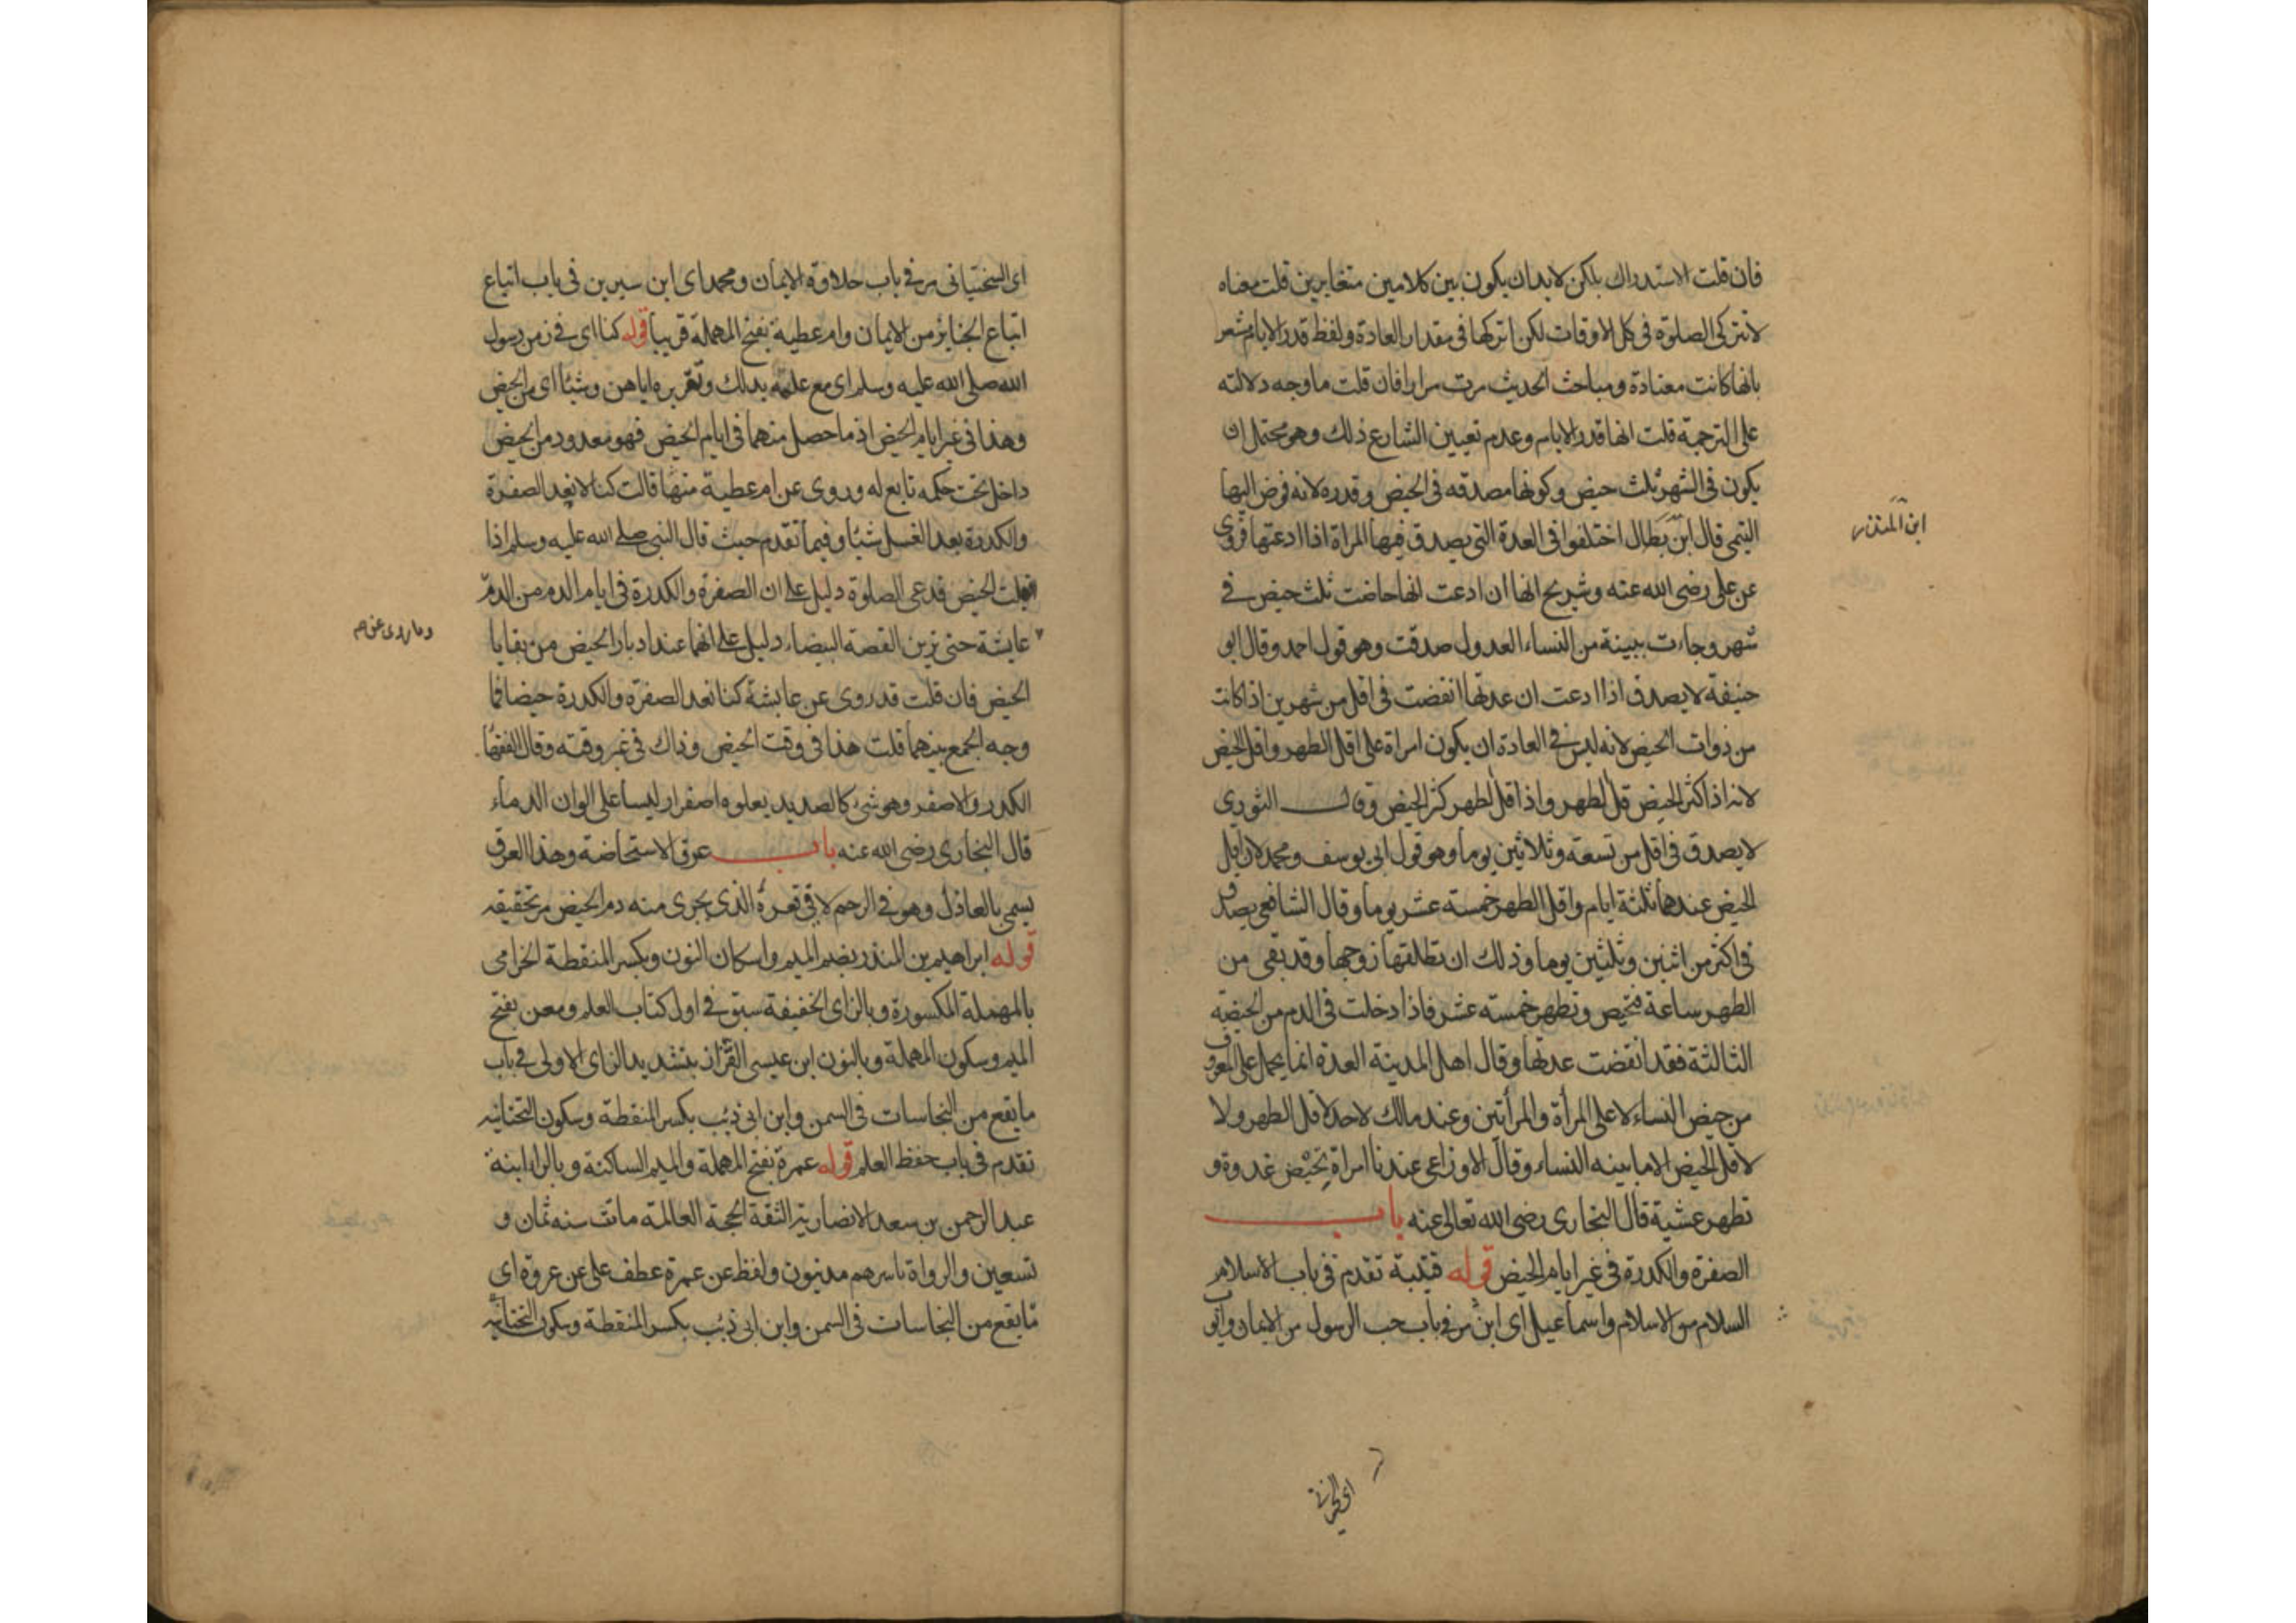 فان قلت الاستدراك بلكن لابد ان يكون بين كلامين متغايرين قلت معناه
لاتتركى الصلوة فى كل الاوقات لكن اتركها فى مقدار العادة ولفظ قدر الايام مشعر
بانها كانت معتادة ومباحث الحديث مرت مرارا فان قلت ما وجه دلالته
على الترجمة قلت انها قدر الايام وعدم تعيين الشارع ذلك وهو محتمل ان
يكون فى الشهر ثلث حيض وكونها مصدقه فى الحيض وقدره لانه فوض اليها
التيمى قال ابن بطال اختلفوا فى العدة التى يصدق فيها المراة اذا ادعتها فروى
ابن المنذر
عن على رضى الله عنه وشريح انها ان ادعت انها حاضت ثلث حيض فى
شهر وجاءت ببينة من النساء العدول صدقت وهو قول احمد وقال ابو
حنيفة لايصدق اذا ادعت ان عدتها انقضت فى اقل من شهرين اذا كانت
من ذوات الحيض لانه ليس فى العادة ان يكون امراة على اقل الطهر واقل الحيض
لانه اذا كثر الحيض قل الطهر واذا قل الطهر كثر الحيض وقال الثورى
لايصدق فى اقل من تسعة وثلاثين يوما وهو قول ابى يوسف ومحمد لان اقل
الحيض عندهما ثلثة ايام واقل الطهر خمسة عشر يوما وقال الشافعى يصدق
فى اكثر من اثنين وثلثين يوما وذلك ان تطلقها زوجها وقد بقى من
الطهر ساعة فتحيض وتطهر خمسته عشر فاذا دخلت فى الدم من الحيضة
الثالثة فقد انقضت عدتها وقال اهل المدينة العدة انما يحمل على المعروف
من حيض النساء لا على المرأة والمرأتين وعند مالك لاحد لاقل الطهر ولا
لاقل الحيض الا مابينه النساء وقال الاوزاعى عندنا امراة تحيض غدوة و
تطهر عشية قال البخارى رضى الله تعالى عنه باب
الصفرة والكدرة فى غير ايام الحيض قوله قتيبة تقدم فى باب الاسلام
السلام من الاسلام واسماعيل اى ابن مر فى باب حب الرسول من الايمان وايو
اى السختيانى مر فى باب حلاوة الايمان ومحمد اى ابن سيرين فى باب اتباع
اتباع الجنايز من الايمان وام عطية بفتح المهملة قريبا قوله كنا اى فى زمن رسول
الله صلى الله عليه وسلم اى مع علمه بذلك وتقريره اياهن وشيئا اى من الحيض
وهذا فى غير ايام الحيض اذ ما حصل منهما فى ايام الحيض فهو معدود من الحيض
داخل تحت حكمه تابع له وروى عن ام عطية منها قالت كنا لا نعد الصفرة
والكدرة بعد الغسل شيئا وفيما تقدم حيث قال النبى صلى الله عليه وسلم اذا
اقبلت الحيض فدعى الصلوة دليل على ان الصفرة والكدرة فى ايام الدم من الدم
وما روى عن
عايشة حتى ترين القصة البيضاء دليل على انهما عند ادبار الحيض من بقايا
الحيض فان قلت قد روى عن عايشة كنا نعد الصفرة والكدرة حيضا فما
وجه الجمع بينهما قلت هذا فى وقت الحيض وذاك فى غير وقته وقال الفقها
الكدر والاصفر وهو شىء كالصديد يعلوه اصفرار ليسا على الوان الدماء
قال البخارى رضى الله عنه باب عرق الاستحاضة وهذا العرق
يسمى بالعاذل وهو فى الرحم لا فى قعره الذى يجرى منه دم الحيض مر تحقيقه
قوله ابراهيم بن المنذر بضم الميم واسكان النون وبكسر المنقطة الخزامى
بالمهملة المكسورة وبالزاى الخفيفة سبق فى اول كتاب العلم ومعن بفتح
الميم وسكون المهملة وبالنون ابن عيسى القزاز بتشديد الزاى الاولى فى باب
ما يقع من النجاسات فى السمن وابن ابى ذئب بكسر المنقطة وسكون التحتانيه
تقدم فى باب حفظ العلم قوله عمرة بفتح المهملة والميم الساكنة وبالراء ابنة
عبد الرحمن بن سعد الانصارية الثقة الحجة العالمة ماتت سنه ثمان و
تسعين والرواة باسرهم مدنيون ولفظ عن عمرة عطف على عن عروة اى
ما يقع من النجاسات فى السمن وابن ابى ذئب بكسر المنقطة وسكون التحتانيه